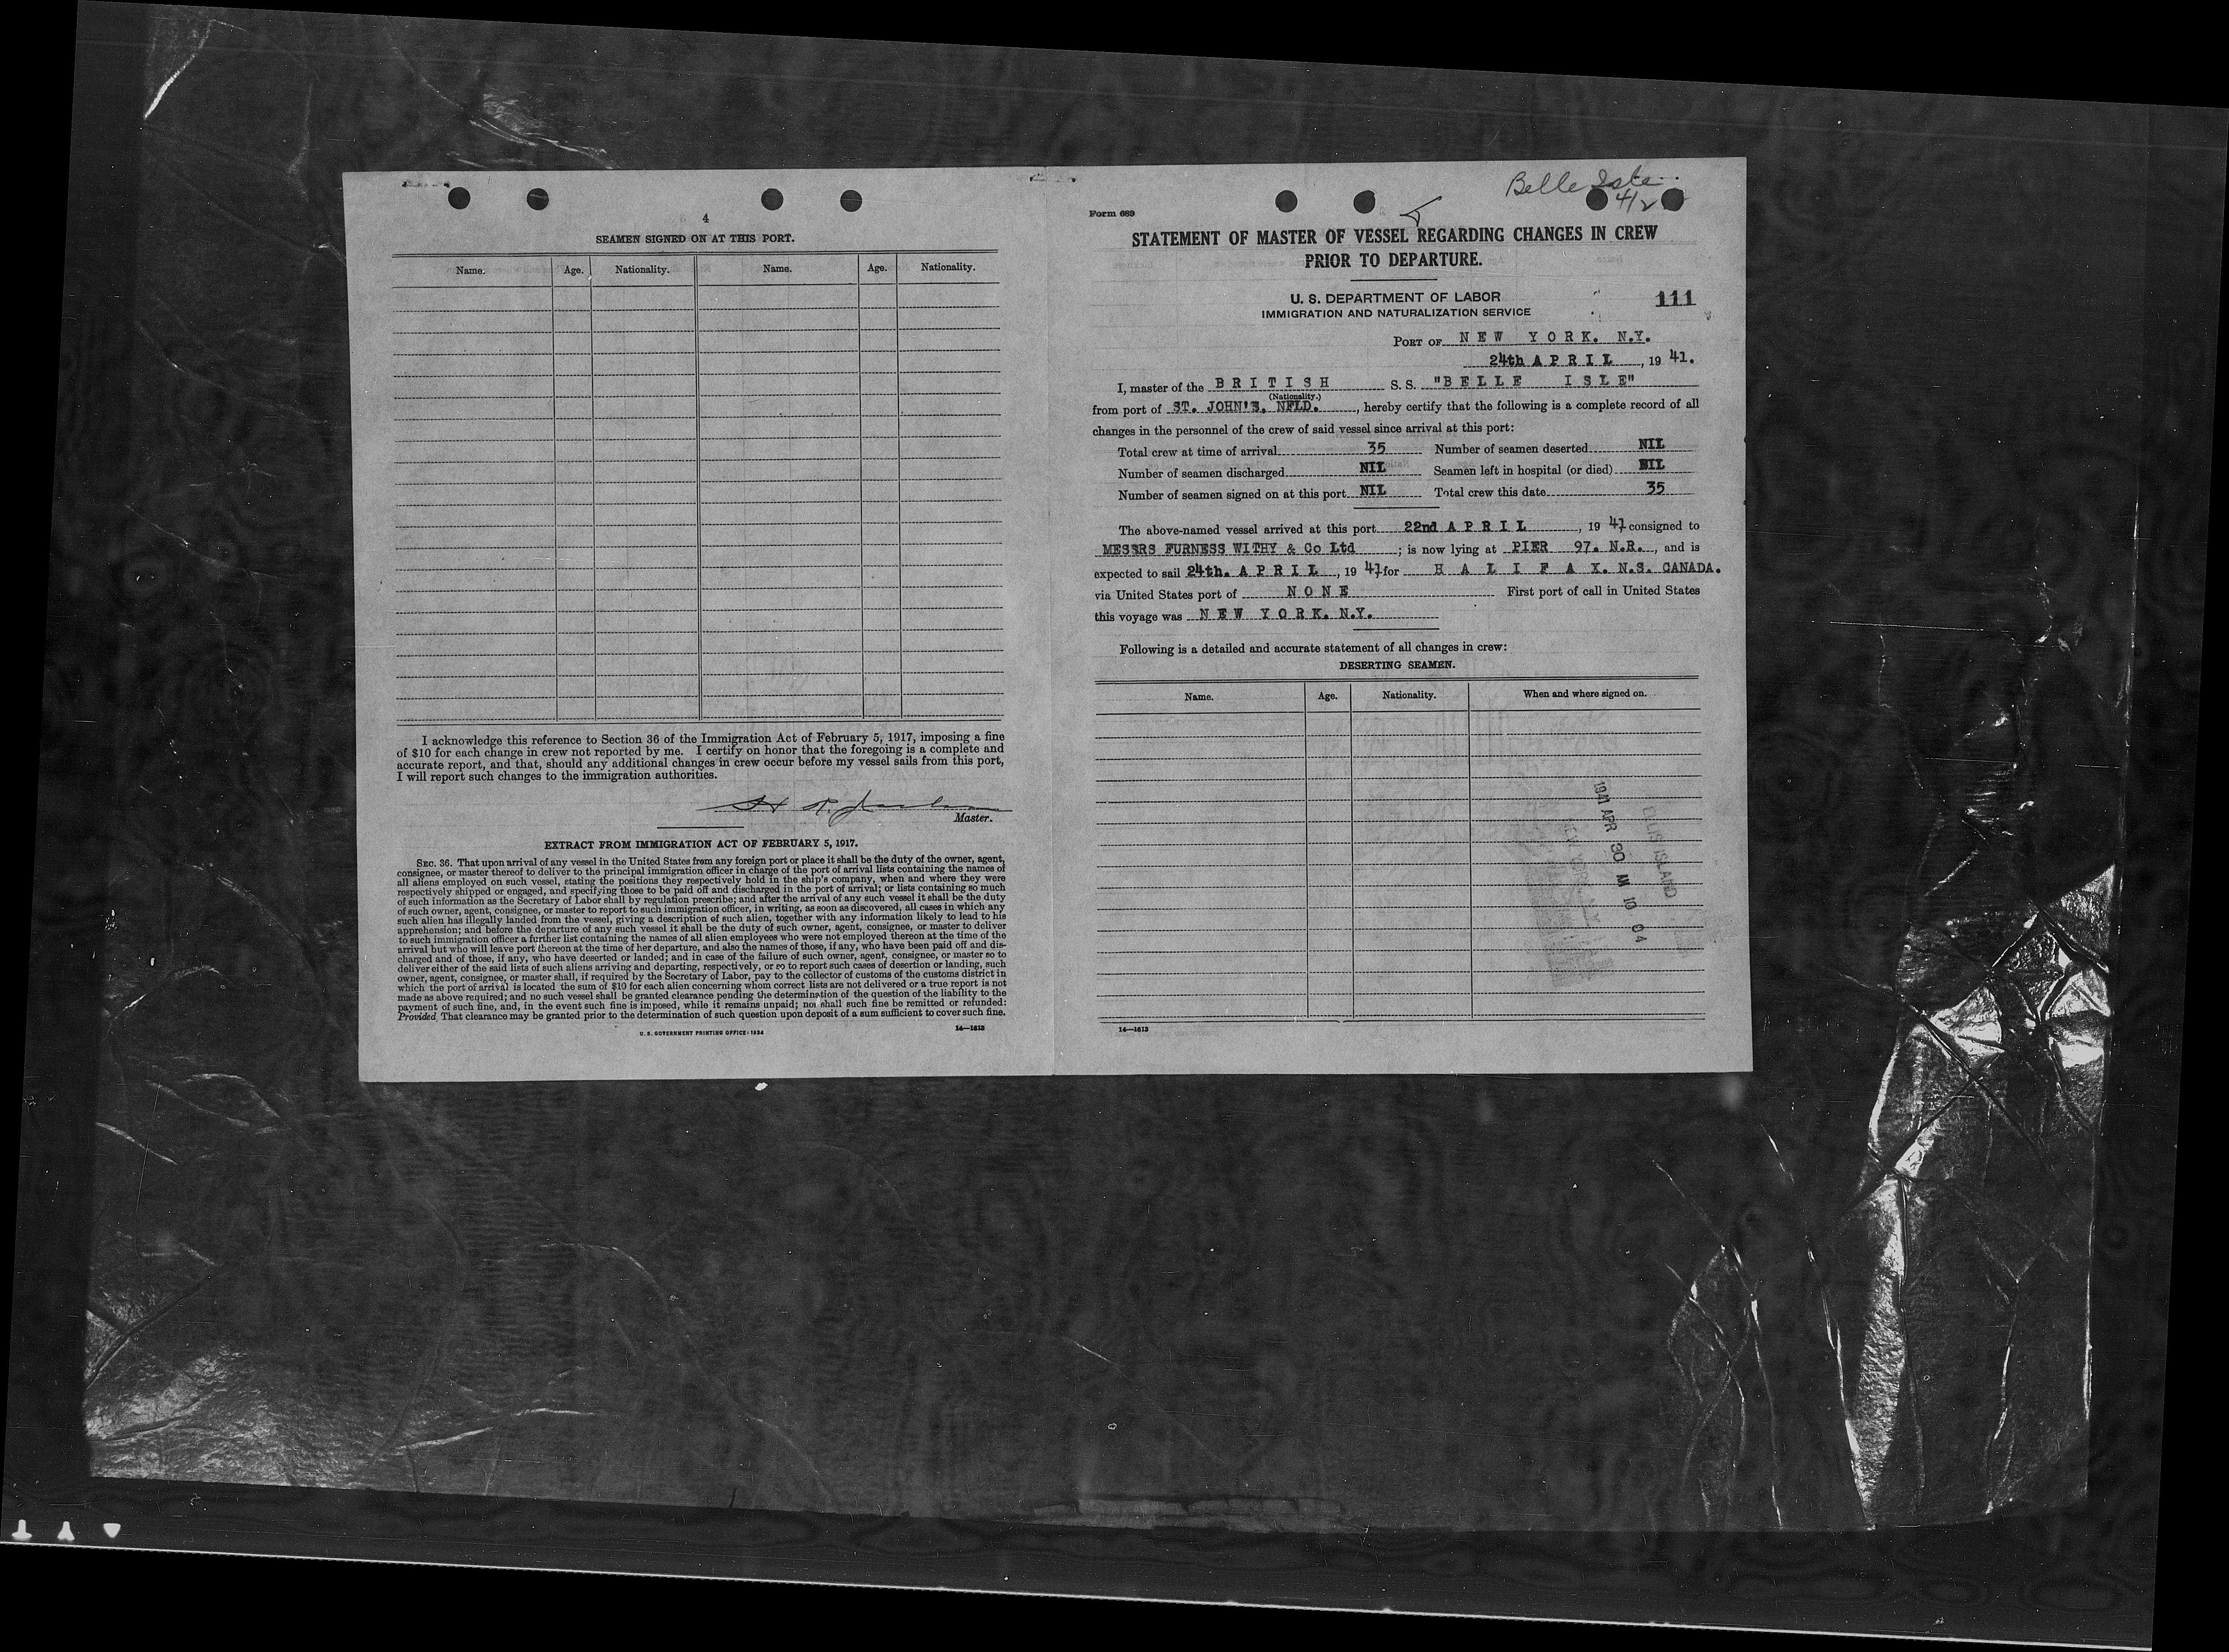 4
SEAMEN SIGNED ON AT THIS PORT.
Name. Age. Nationality. Name. Age. Nationality.
I acknowledge this reference to Section 36 of the Immigration Act of February 5, 1917, imposing a fine
of $10 for each change in crew not reported by me. I certify on honor that the foregoing is a complete and
accurate report, and that, should any additional changes in crew occur before my vessel sails from this port,
I will report such changes to the immigration authorities.
Master.
EXTRACT FROM IMMIGRATION ACT OF FEBRUARY 5, 1917.
SEC. 36. That upon arrival of any vessel in the United States from any foreign port or place it shall be the duty of the owner, agent,
consignee, or master thereof to deliver to the principal immigration officer in charge of the port of arrival lists containing the names of
all aliens employed on such vessel, stating the positions they respectively hold in the ship's company, when and where they were
respectively shipped or engaged, and specifying those to be paid off and discharged in the port of arrival; or lists containing so much
of such information as the Secretary of Labor shall by regulation prescribe; and after the arrival of any such vessel it shall be the duty
of such owner, agent, consignee, or master to report to such immigration officer, in writing, as soon as discovered, all cases in which any
such alien has illegally landed from the vessel, giving a description of such alien, together with any information likely to lead to his
apprehension; and before the departure of any such vessel it shall be the duty of such owner, agent, consignee, or master to deliver
to such immigration officer a further list containing the names of all alien employees who were not employed thereon at the time of the
arrival but who will leave port thereon at the time of her departure, and also the names of those, if any, who have been paid off and dis-
charged and of those, if any, who have deserted or landed; and in case of the failure of such owner, agent, consignee, or master so to
deliver either of the said lists of such aliens arriving and departing, respectively, or so to report such cases of desertion or landing, such
owner, agent, consignee, or master shall, if required by the Secretary of Labor, pay to the collector of customs of the customs district in
which the port of arrival is located the sum of $10 for each alien concerning whom correct lists are not delivered or a true report is not
made as above required; and no such vessel shall be granted clearance pending the determination of the question of the liability to the
payment of such fine, and, in the event such fine is imposed, while it remains unpaid; nor shall such fine be remitted or refunded:
Provided, That clearance may be granted prior to the determination of such question upon deposit of a sum sufficient to cover such fine.
U. S. GOVERNMENT PRINTING OFFICE: 1934 14—1613
Belle Isle
4/2
Form 689
STATEMENT OF MASTER OF VESSEL REGARDING CHANGES IN CREW
PRIOR TO DEPARTURE.
U. S. DEPARTMENT OF LABOR
IMMIGRATION AND NATURALIZATION SERVICE
111
PORT OF NEW YORK. N.Y.
24th APRIL, 19 41.
I, master of the BRITISH S. S. "BELLE ISLE"
(Nationality.)
from port of ST. JOHN'S. NFLD., hereby certify that the following is a complete record of all
changes in the personnel of the crew of said vessel since arrival at this port:
Total crew at time of arrival 35 Number of seamen deserted NIL
Number of seamen discharged NIL Seamen left in hospital (or died) NIL
Number of seamen signed on at this port NIL Total crew this date 35
The above-named vessel arrived at this port 22nd APRIL, 19 41 consigned to
MESSRS FURNESS WITHY & Co Ltd; is now lying at PIER 97. N.R., and is
expected to sail 24th. APRIL, 19 41 for HALIFAX. N.S. CANADA.
via United States port of NONE First port of call in United States
this voyage was NEW YORK. N.Y.
Following is a detailed and accurate statement of all changes in crew:
DESERTING SEAMEN.
Name. Age. Nationality. When and where signed on.
1941 APR 30 AM 10 04
ELLIS ISLAND
14—1613